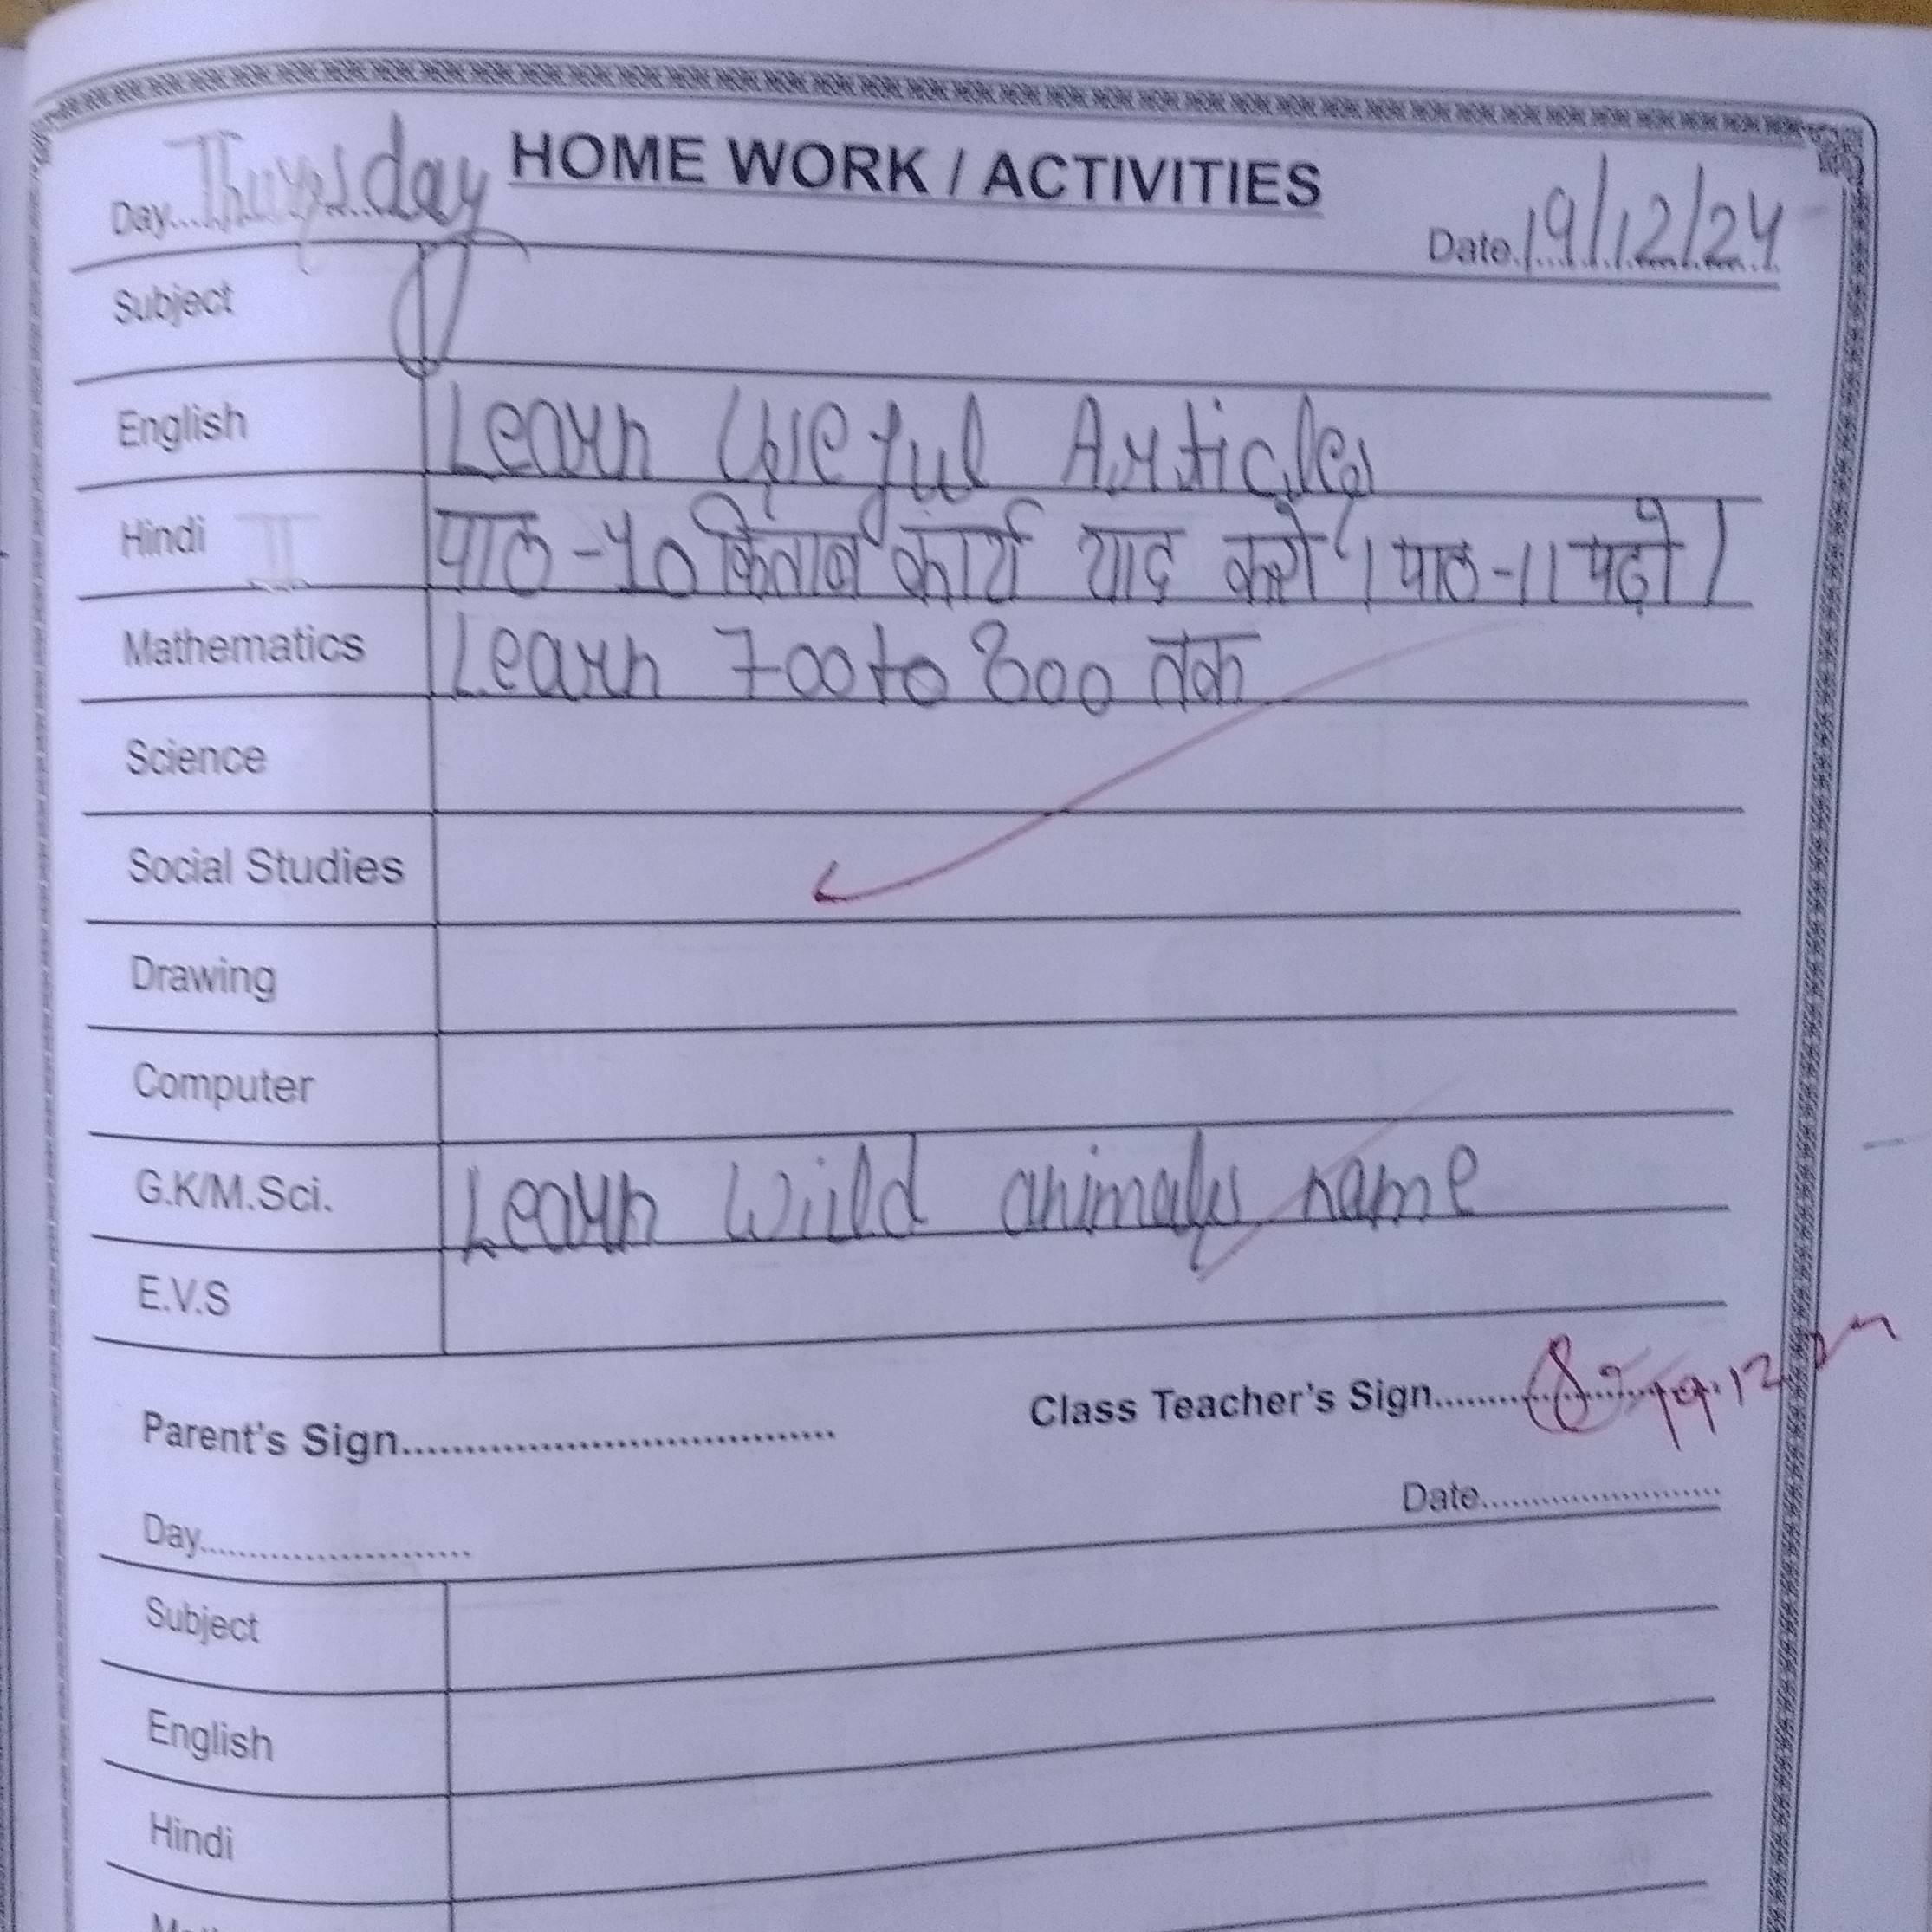 HOME WORK / ACTIVITIES
Day...Thursday
Date.19/12/24
Subject
English Learn Useful Articles
Hindi II पाठ-10 किताब कार्य याद करो । पाठ-11 पढ़ो ।
Mathematics Learn 700 to 800 तक
Science
Social Studies
Drawing
Computer
G.K/M.Sci. Learn Wiild animals name
E.V.S
Parent's Sign..................................... Class Teacher's Sign.......... 19.12.24
Day......................... Date.........................
Subject
English
Hindi